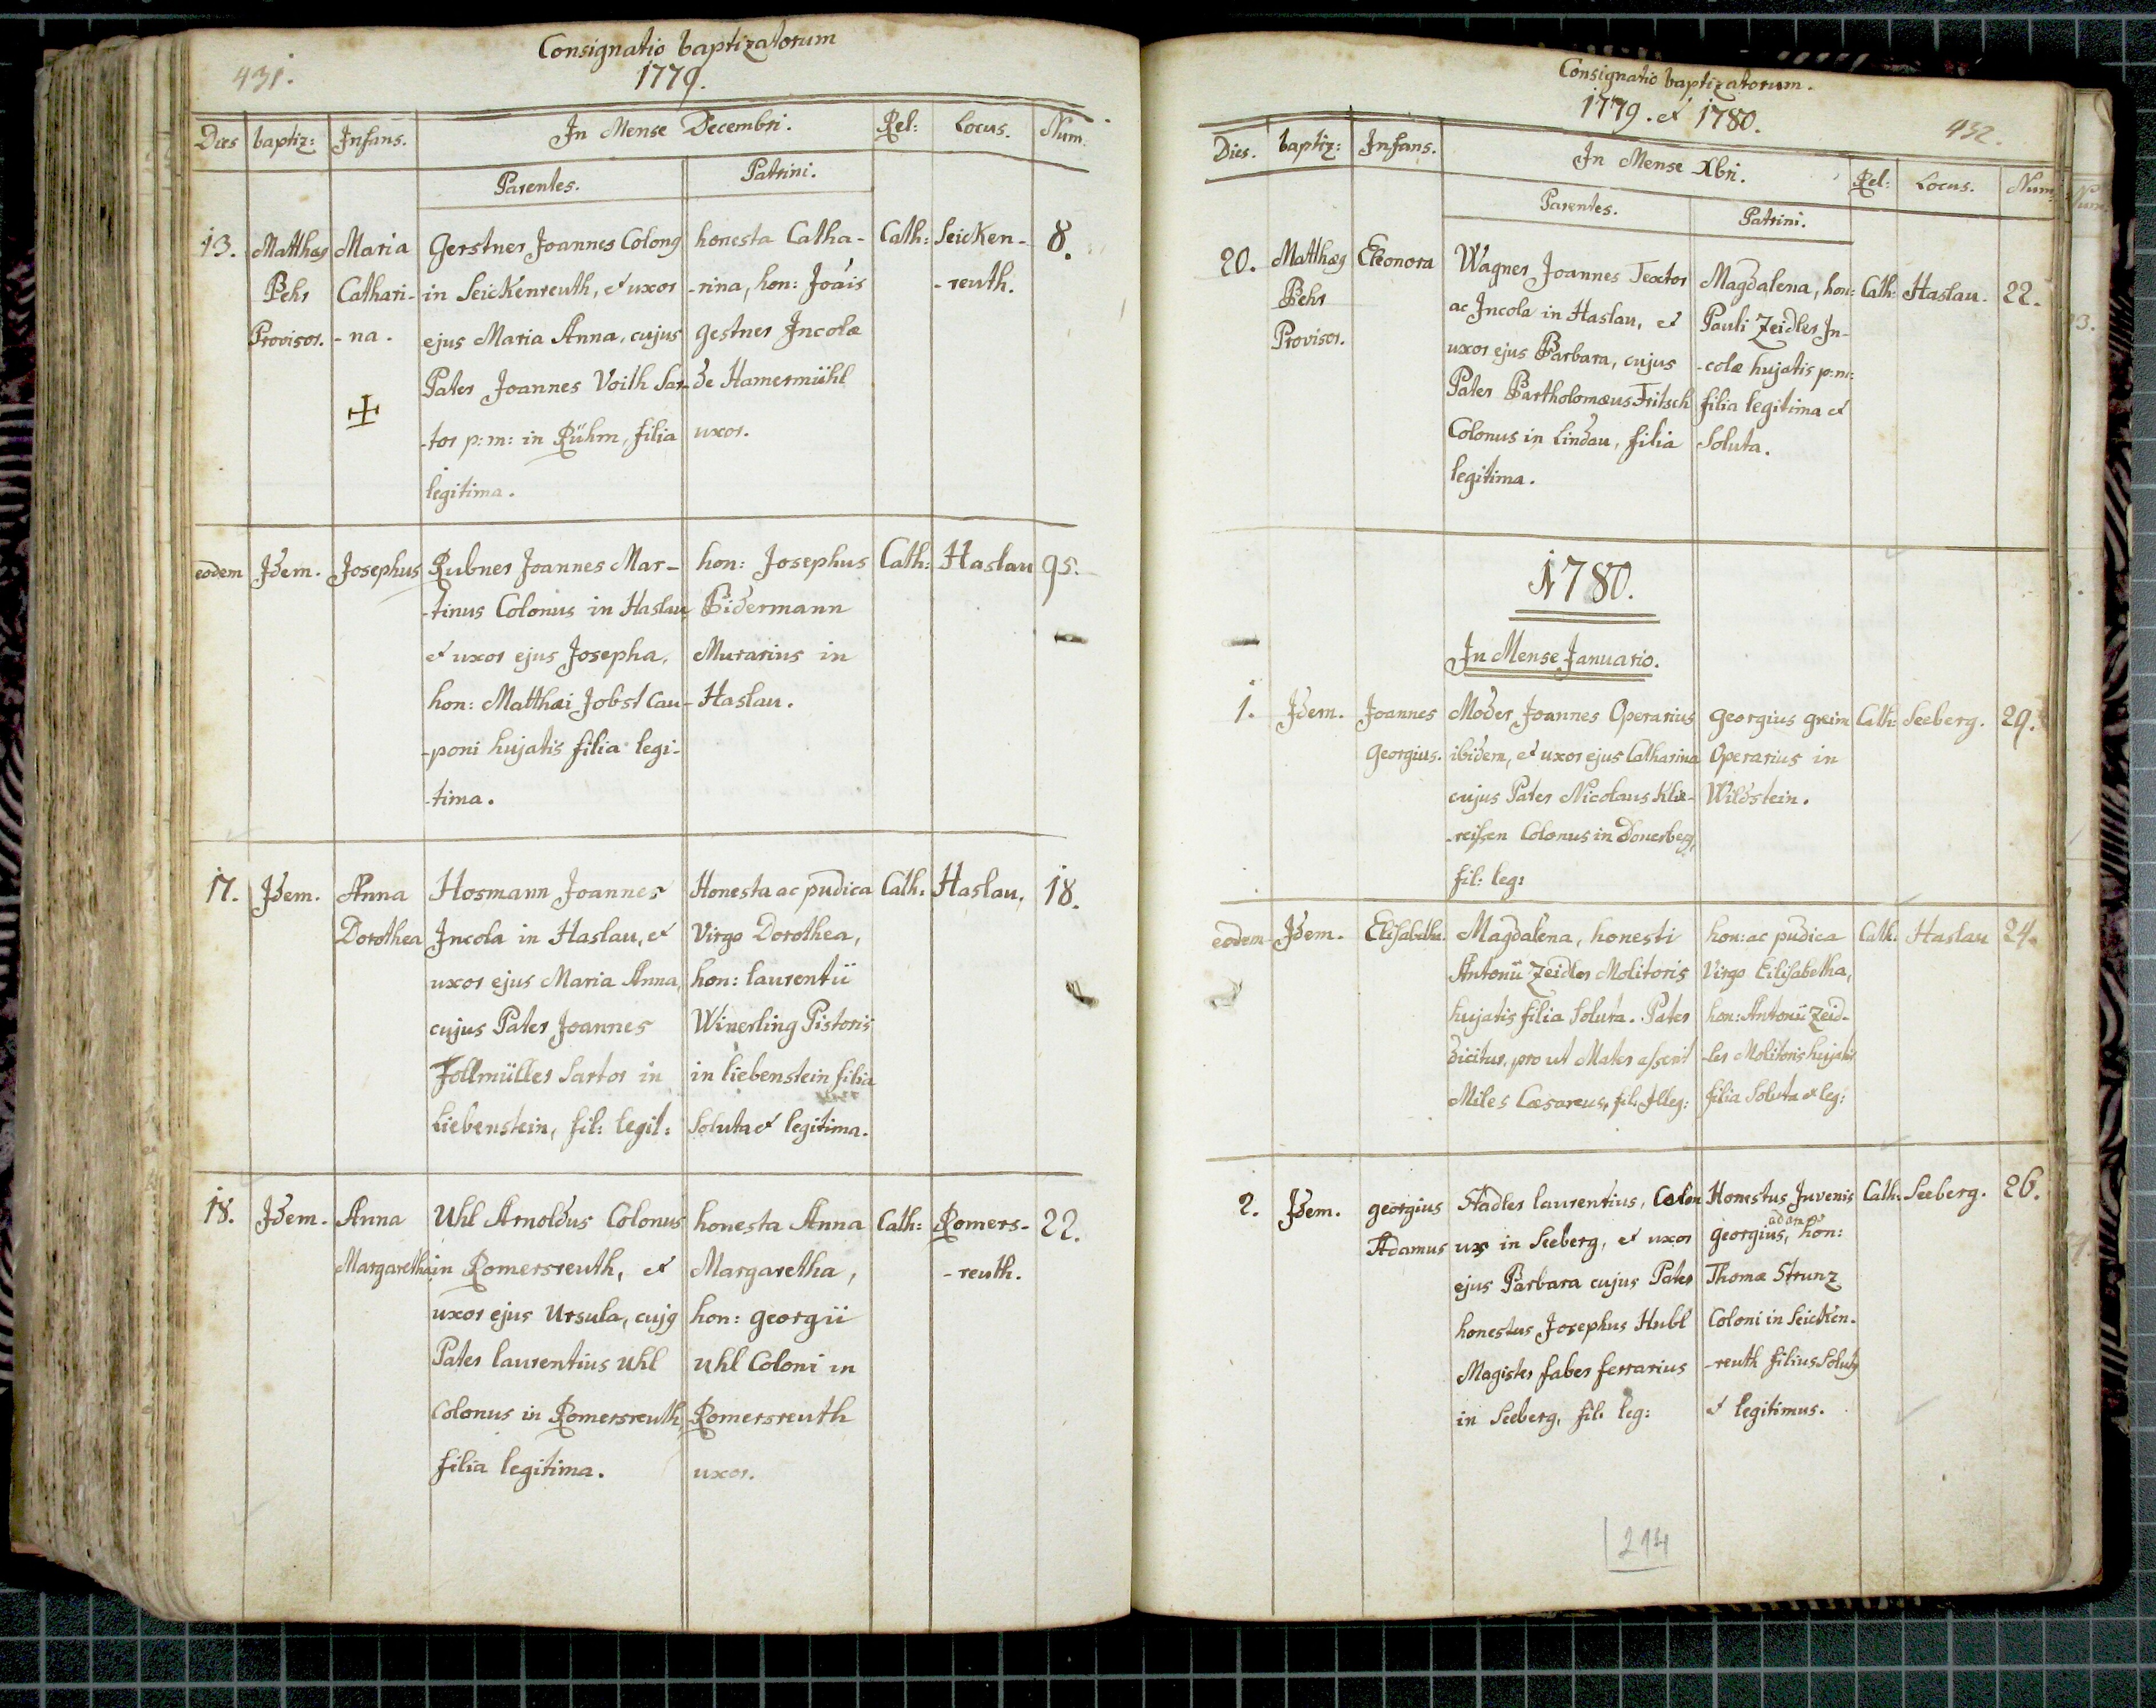 431.
Consignatio baptizatorum
1779.
Dies baptiz: Infans. In Mense Decembri. Rel: Locus. Num.
Parentes. Patrini.
13. Matthæg Maria Gerstner Joannes Colong honesta Catha- Cath: Seicken- 8.
Pehr Cathari- in Seickenreuth, et uxor -rina, hon: Joais -reuth.
Provisor. -na. ejus Maria Anna, cujus Gestner Incolæ
Pater Joannes Voith Sar- de Hamermühl
-tor p: m: in Rühm, filia uxor.
legitima.
eodem Idem. Josephus Rubner Joannes Mar- hon: Josephus Cath: Haslau 95.
-tinus Colonus in Haslau, Bidermann
et uxor ejus Josepha, Murarius in
hon: Matthæi Jobst Cau- Haslau.
-poni hujatis filia legi-
-tima.
17. Idem. Anna Hosmann Joannes Honesta ac pudica Cath: Haslau, 18.
Dorothea Incola in Haslau, et Virgo Dorothea,
uxor ejus Maria Anna, hon: laurentii
cujus Pater Joannes Winerling Pistoris
Follmüller Sartor in in liebenstein filia
Liebenstein, fil: legit: Soluta et legitima.
18. Idem. Anna Uhl Arnoldus Colonus honesta Anna Cath: Romers- 22.
Margaretha in Romersreuth, et Margaretha, -reuth.
uxor ejus Ursula, cujg hon: georgii
Pater laurentius Uhl Uhl Coloni in
Colonus in Romersreuth, Romersreuth
filia legitima. uxor.
Consignatio baptizatorum.
1779. et 1780.
432.
Dies. baptiz: Infans. In Mense Xbri. Rel: Locus. Num:
Parentes. Patrini.
20. Matthæg Eleonora Wagner Joannes Textor Magdalena, hon: Cath: Haslau. 22.
Pehr ac Incola in Haslau, et Pauli Zeidler In-
Provisor. uxor ejus Barbara, cujus -colæ hujatis p: m:
Pater Bartholomæus Fritsch filia legitima et
Colonus in Lindau, filia Soluta.
legitima.
1780.
In Mense Januario.
1. Idem. Joannes Moder Joannes Operarius georgius greim Cath: Seeberg. 29.
Georgius. ibidem, et uxor ejus Catharina Operarius in
cujus Pater Nicolaus Klie- Wildstein.
-reisen Colonus in Donerberg,
fil: leg:
eodem Idem. Elisabetha. Magdalena, honesti hon: ac pudica Cath: Haslau 24.
Antonii Zeidler Molitoris Virgo Eilisabetha,
hujatis filia Soluta. Pater hon: Antonii Zeid-
dicitur, pro ut Mater asserit -ler Molitoris hujatis
Miles Cæsareus, fil: Illeg: filia Soluta et leg:
2. Idem. georgius Stadler laurentius, Colon Honestus Juvenis Cath: Seeberg. 26.
Adamus us in Seeberg, et uxor georgius, adamg hon:
ejus Barbara cujus Pater Thomæ Strunz
honestus Josephus Hubl Coloni in Seicken-
Magister faber ferrarius -reuth filius Solutg
in Seeberg, fil: leg: et legitimus.
214